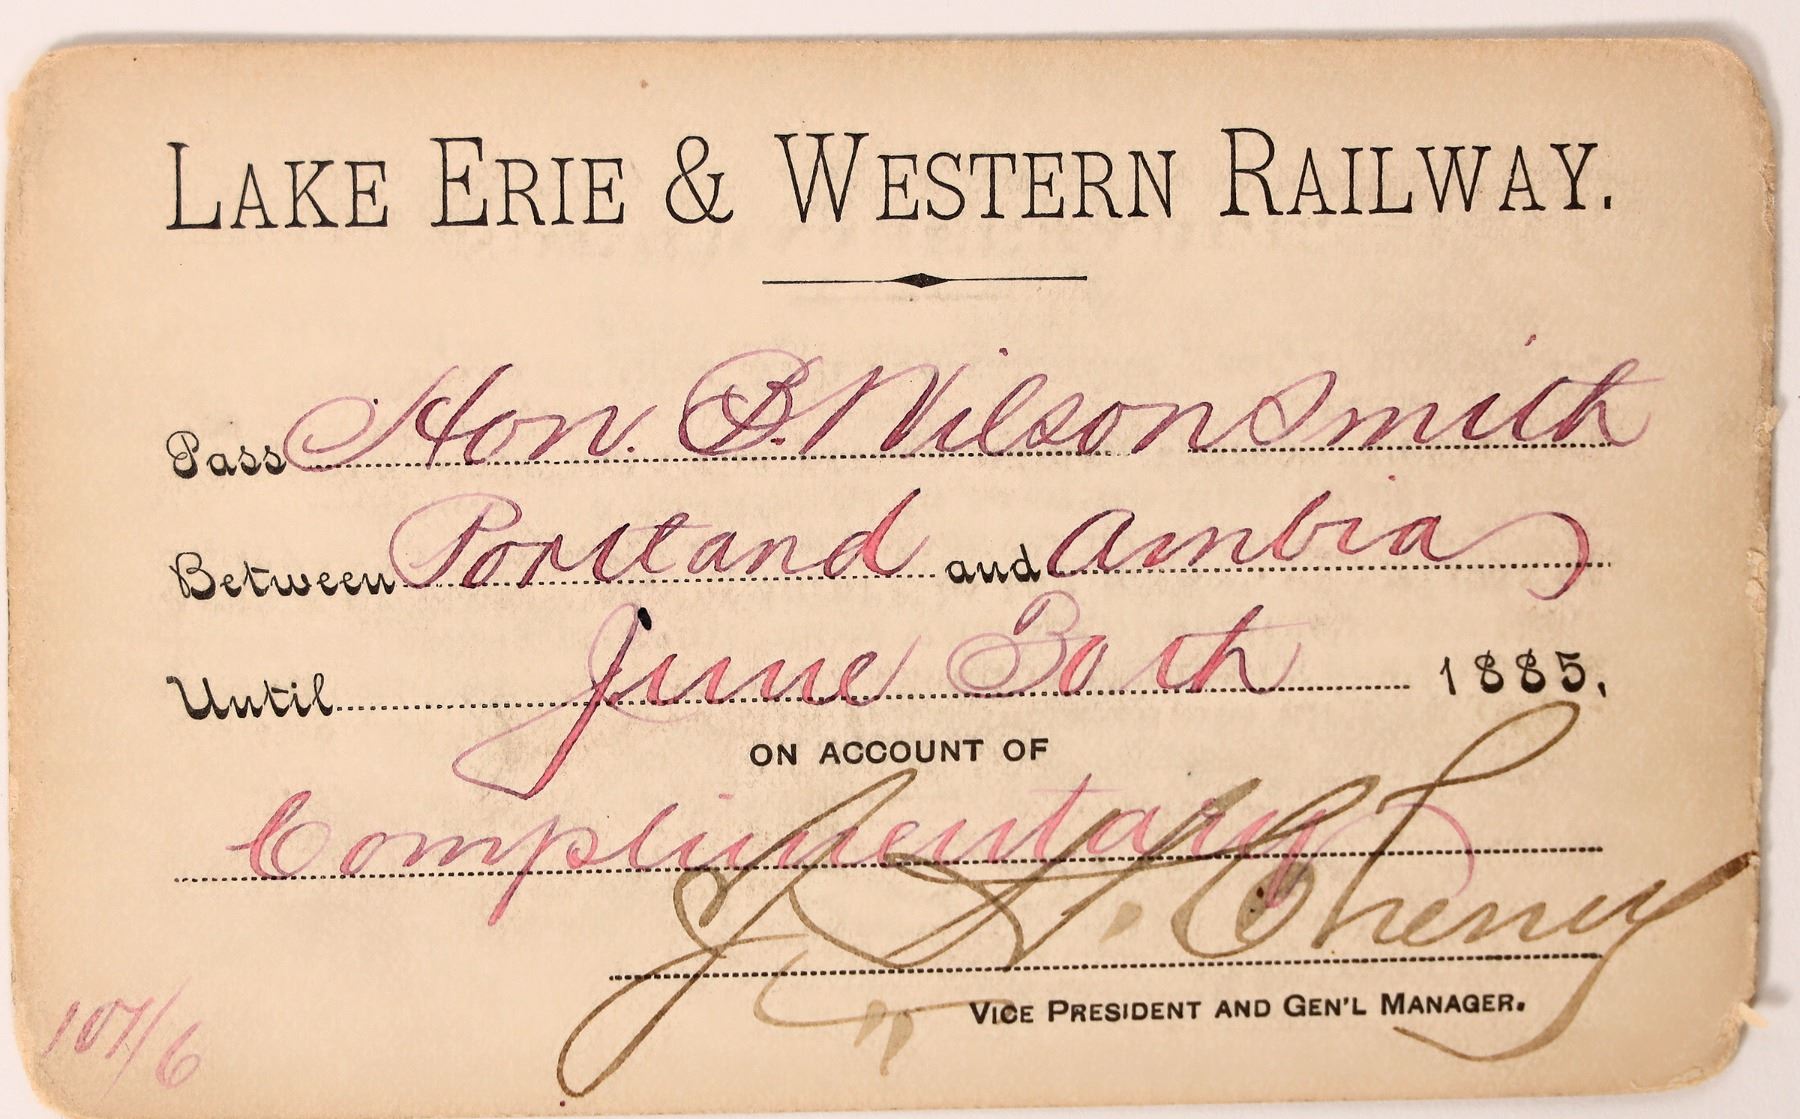 LAKE ERIE & WESTERN RAILWAY.
Pass Hon. B. Wilson Smith
Between Portland and Ambia
Until June 30th 1885,
ON ACCOUNT OF
Complimentary
Cheney
VICE PRESIDENT AND GEN'L MANAGER.
107/6